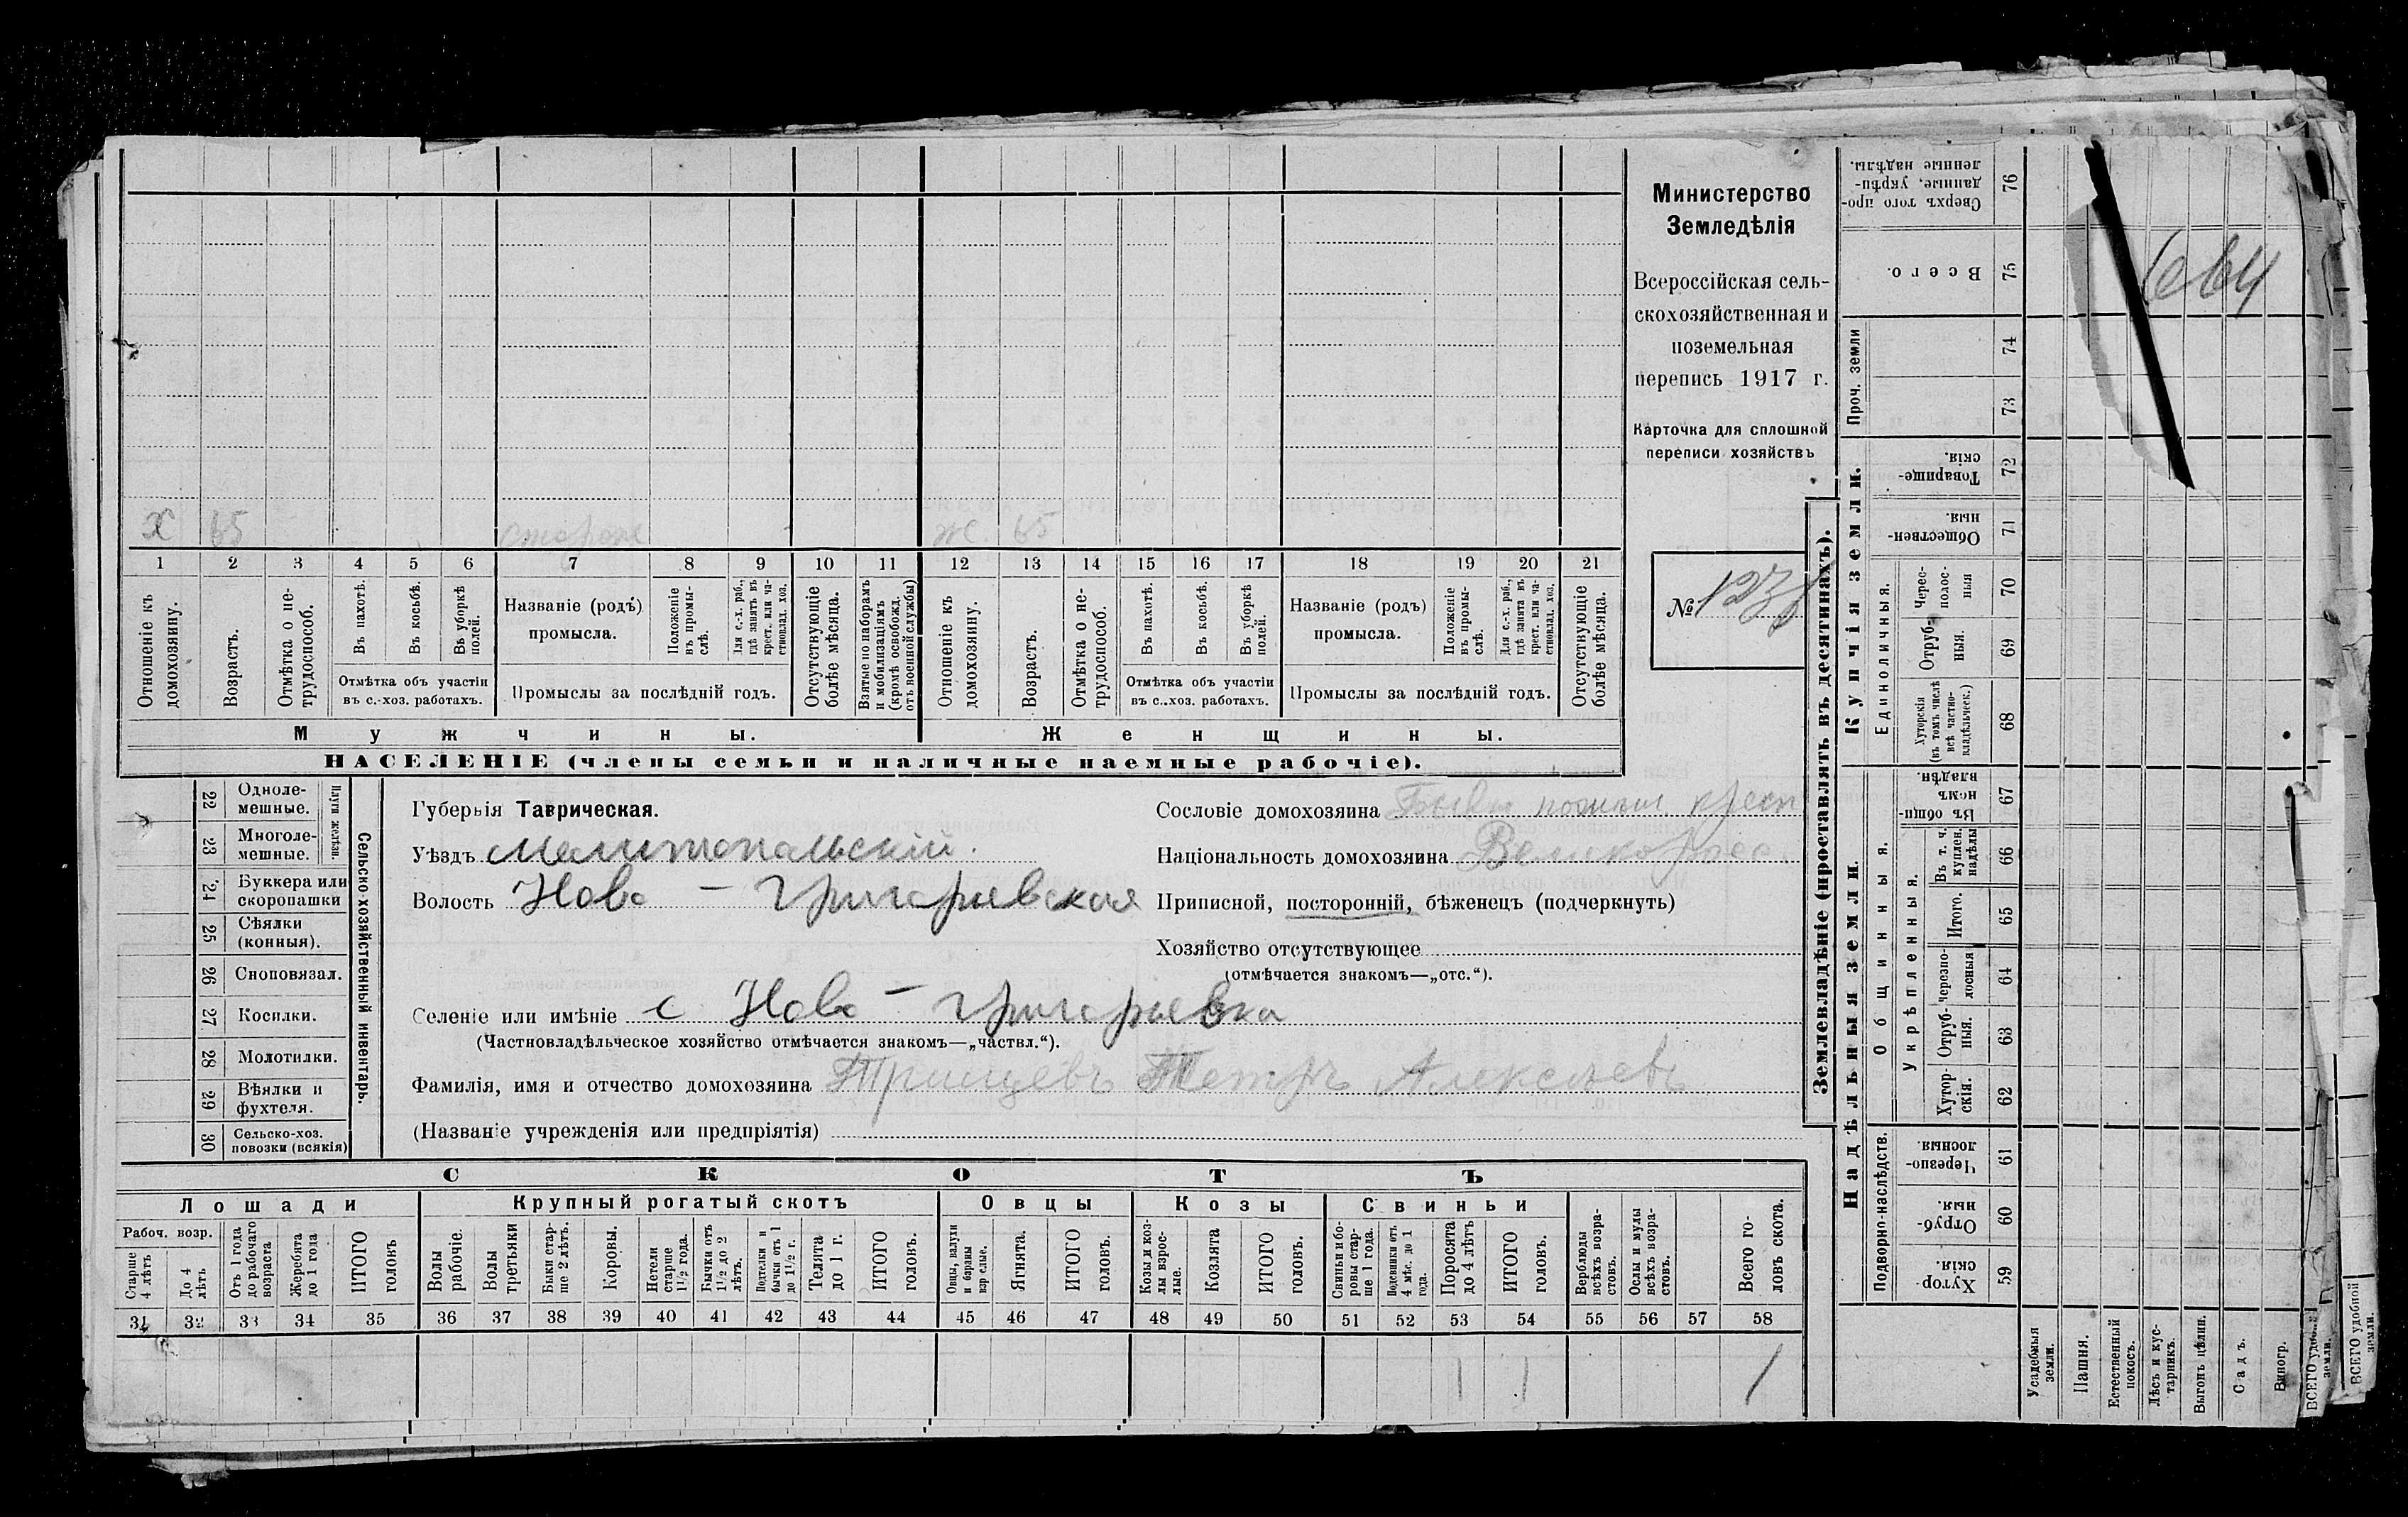 Министерство
Земледѣлія
Всероссійская сель-
скохозяйственная и
поземельная
перепись 1917 г.
Карточка для сплошной
переписи хозяйствъ
№ 123
664
Х 65
Ж. 65
1 2 3 4 5 6 7 8 9 10 11 12 13 14 15 16 17 18 19 20 21
Отношеніе къ домохозяину.
Возрастъ.
Отмѣтка о не-трудоспособ.
Въ пахотѣ.
Въ косьбѣ.
Въ уборкѣ полей.
Отмѣтка объ участіи
въ с.-хоз. работахъ.
Названіе (родъ)
промысла.
Положеніе въ промы-слѣ.
Для с.-х. раб., гдѣ занятъ въ крест. или ча-стновлад. хоз.
Промыслы за послѣдній годъ.
Отсутствующіе болѣе мѣсяца.
Взятые по наборамъ и мобилизаціямъ (кромѣ освобожд. отъ военной службы)
Отношеніе къ домохозяину.
Возрастъ.
Отмѣтка о не-трудоспособ.
Въ пахотѣ.
Въ косьбѣ.
Въ уборкѣ полей.
Отмѣтка объ участіи
въ с.-хоз. работахъ.
Названіе (родъ)
промысла.
Положеніе въ промы-слѣ.
Для с.-х. раб., гдѣ занята въ крест. или ча-стновлад. хоз.
Промыслы за послѣдній годъ.
Отсутствующіе болѣе мѣсяца.
Мужчины.
Женщины.
НАСЕЛЕНІЕ (члены семьи и наличные наемные рабочіе).
22 Однолемешные.
23 Многолемешные.
Плуги желѣзн.
24 Буккера или скоропашки
25 Сѣялки (конныя).
26 Сноповязал.
27 Косилки.
28 Молотилки.
29 Вѣялки и фухтеля.
30 Сельско-хоз. повозки (всякія)
Сельско-хозяйственный инвентарь.
Губернія Таврическая.
Уѣздъ Мелитопольскій.
Волость Ново-Григорьевская
Селеніе или имѣніе с Ново-Григорьевка
(Частновладѣльческое хозяйство отмѣчается знакомъ—„частвл.“).
Фамилія, имя и отчество домохозяина Петръ Алексѣевъ
(Названіе учрежденія или предпріятія)
Сословіе домохозяина
Національность домохозяина Великоросс.
Приписной, посторонній, бѣженецъ (подчеркнуть)
Хозяйство отсутствующее
(отмѣчается знакомъ—„отс.“).
СКОТЪ
Лошади
Крупный рогатый скотъ
Овцы
Козы
Свиньи
Рабоч. возр.
Старше 4 лѣтъ
До 4 лѣтъ
Отъ 1 года до рабочаго возраста
Жеребята до 1 года
ИТОГО головъ
Волы рабочіе.
Волы третьяки
Быки стар-ше 2 лѣтъ.
Коровы.
Нетели старше 1½ года.
Бычки отъ 1½ до 2 лѣтъ.
Подтелки и бычки отъ 1 до 1½ г.
Телята до 1 г.
ИТОГО головъ.
Овцы, валухи и бараны взрослые.
Ягнята.
ИТОГО головъ.
Козы и коз-лы взрос-лые.
Козлята
ИТОГО головъ.
Свиньи и бо-ровы стар-ше 1 года.
Подсвинки отъ 4 мѣс. до 1 года.
Поросята до 4 лѣтъ
ИТОГО головъ.
Верблюды всѣхъ возра-стовъ.
Ослы и мулы всѣхъ возра-стовъ.
Всего го-ловъ скота.
31 32 33 34 35 36 37 38 39 40 41 42 43 44 45 46 47 48 49 50 51 52 53 54 55 56 57 58
1 1 1
Землевладѣніе (проставлять въ десятинахъ).
Купчія земли.
Надѣльныя земли.
Сверхъ того про-данные, укрѣп-ленные надѣлы. 76
Всего. 75
Проч. земли 74 73
Товарище-скія. 72
Обществен-ныя. 71
Единоличныя.
Черес-полос-ныя 70
Отруб-ныя. 69
Хуторскія (въ томъ числѣ всѣ частно-владѣльческ.) 68
Общинныя.
Въ общин-номъ владѣн. 67
Укрѣпленныя.
Въ т. ч. куплен. надѣлы 66
Итого. 65
Черезпо-лосныя 64
Отруб-ныя. 63
Хутор-скія. 62
Подворно-наслѣдств.
Черезпо-лосныя 61
Отруб-ныя. 60
Хутор-скія. 59
Усадебныя земли.
Пашня.
Естественный покосъ.
Лѣсъ и кус-тарникъ.
Выгонъ цѣлин.
Садъ.
Виногр.
ВСЕГО удобной земли.
ВСЕГО удобной земли.